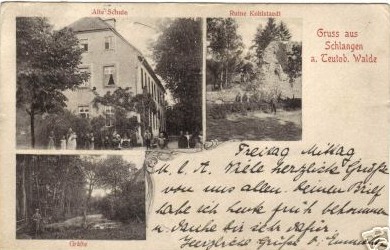 Alte Schule
Ruine Kohlstaedt
Gruss aus
Schlangen
a. Teutob. Walde
Gräfte
Freitag Mittag
M. l. A. Viele herzliche Grüße
von uns allen. Deinen Brief
habe ich heute früh bekommen
u. danke Dir sehr dafür.
Herzliche Grüße